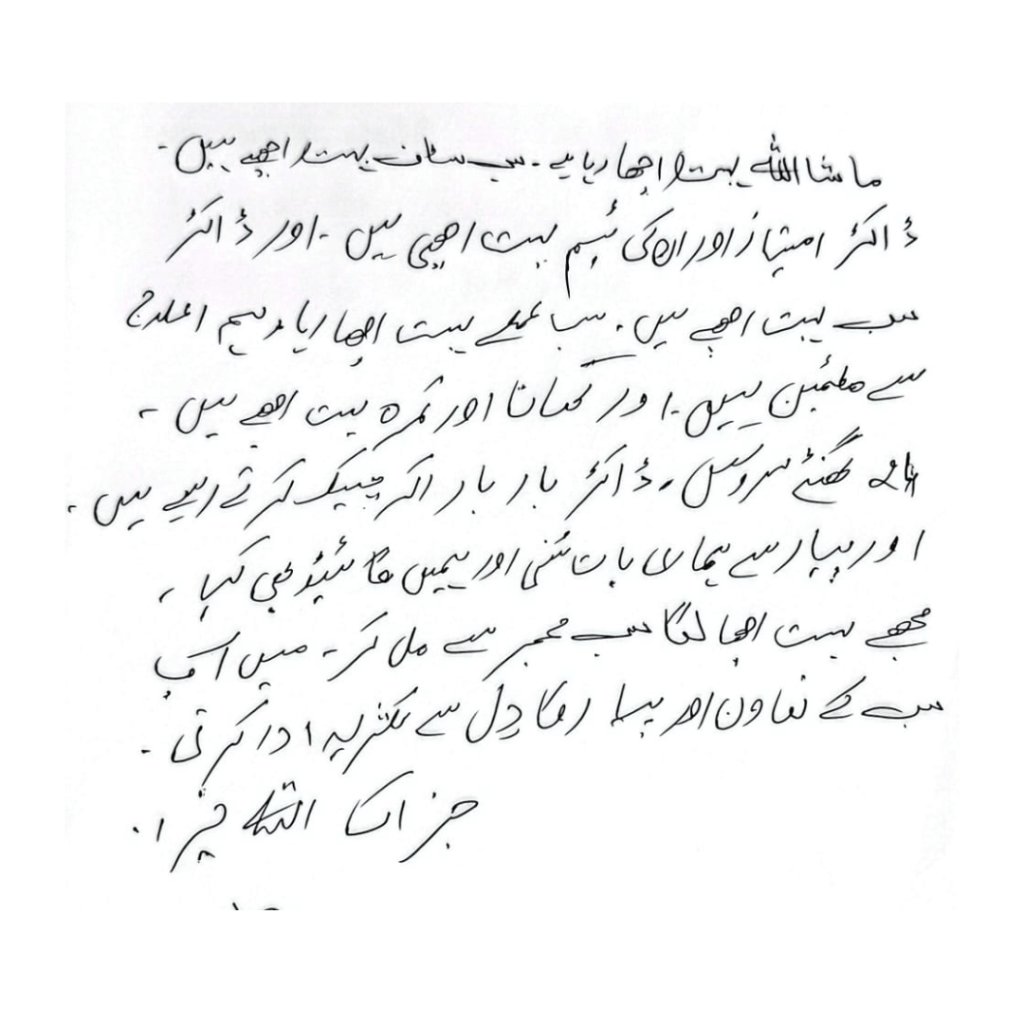 ماشااللہ بہت اچھا رہا ہے۔ سب سٹاف بہت اچھے ہیں۔
ڈاکٹر امتیاز اور ان کی ٹیم بہت اچھی ہیں۔ اور ڈاکٹر
سب بہت اچھے ہیں۔ سب عملے بہت اچھا رہا ہم اعلاج
سے مطمئین ہیں۔ اور کھانا اور کمرہ بہت اچھے ہیں۔
24 گھنٹے سروس۔ ڈاکٹر بار بار آکر چیک کرتے رہے ہیں۔
اور پیار سے ہماری بات سُنی اور ہمیں گائیڈ بھی کیا۔
مجھے بہت اچھا لگا سب ممبر سے مل کر۔ میں آپ
سب کے تعاون اور پیار کا دِل سے شکریہ ادا کرتی۔
جزاک اللہ خیرا۔